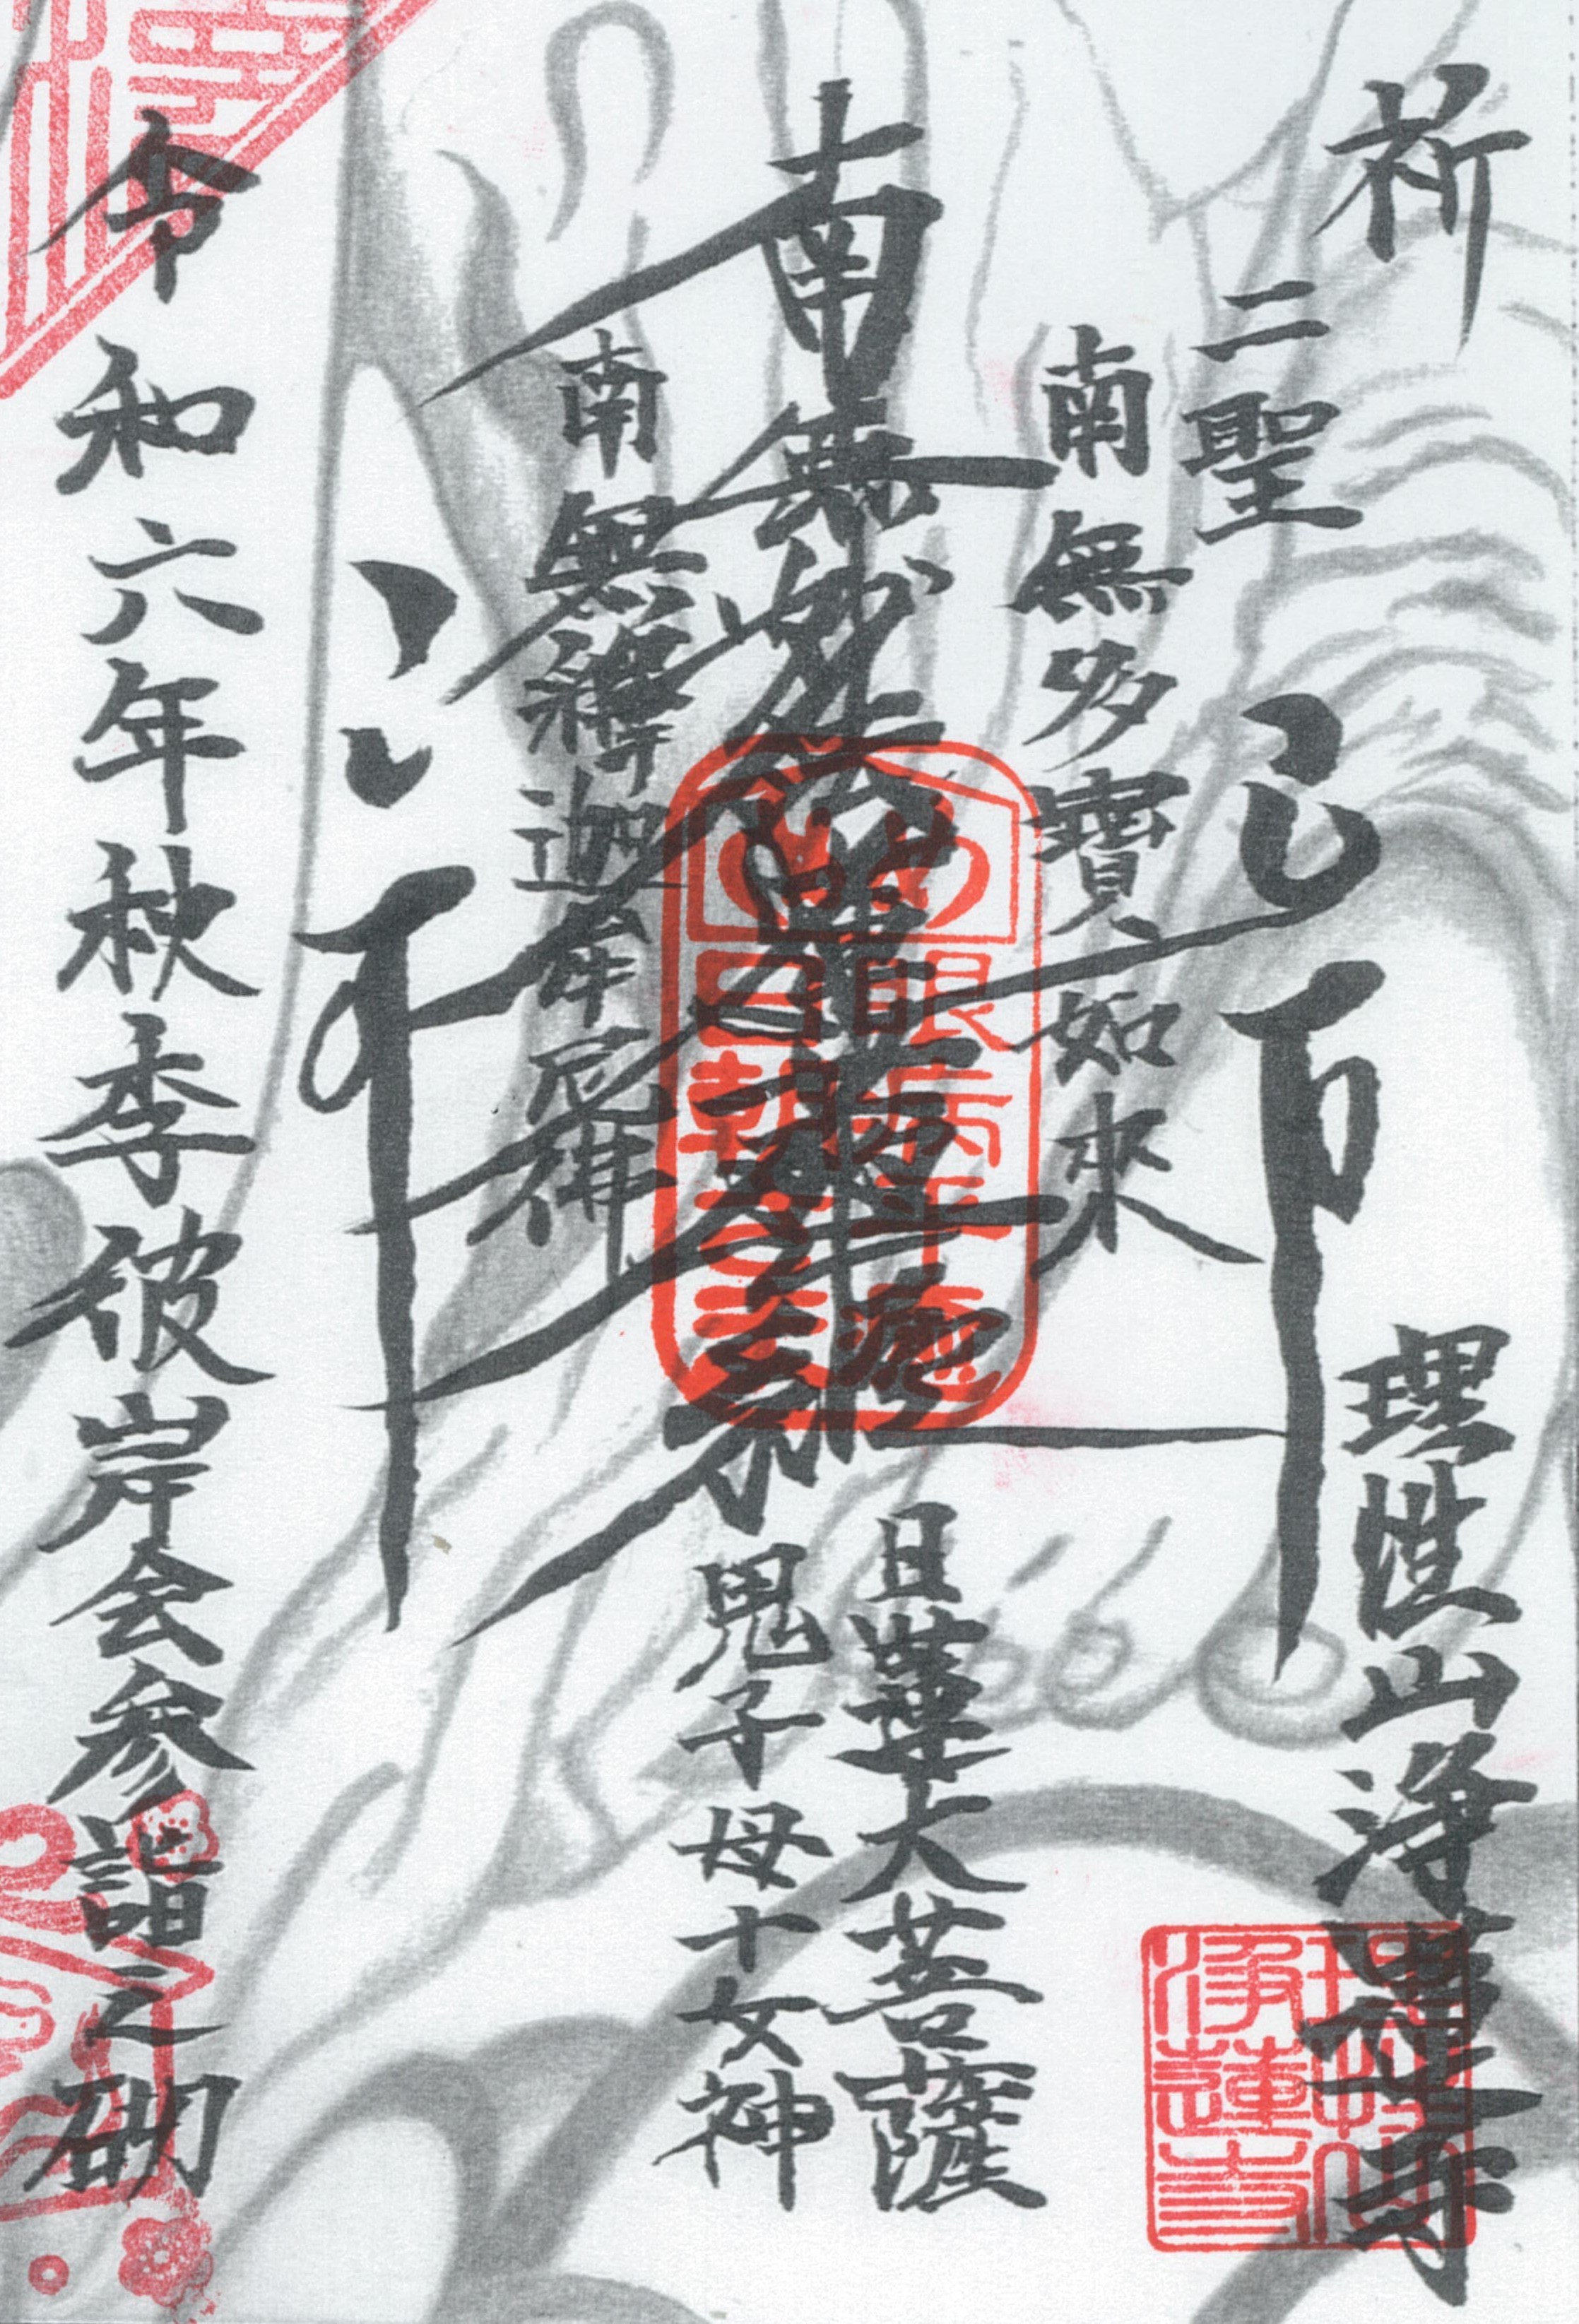 祈
二聖
理性山淨蓮寺
南無多寶如來
南無妙法蓮華経
日蓮大菩薩
鬼子母十女神
南無釋迦牟尼佛
令和六年秋季彼岸会参詣之砌
眼病平癒
日朝
理性山
淨蓮寺